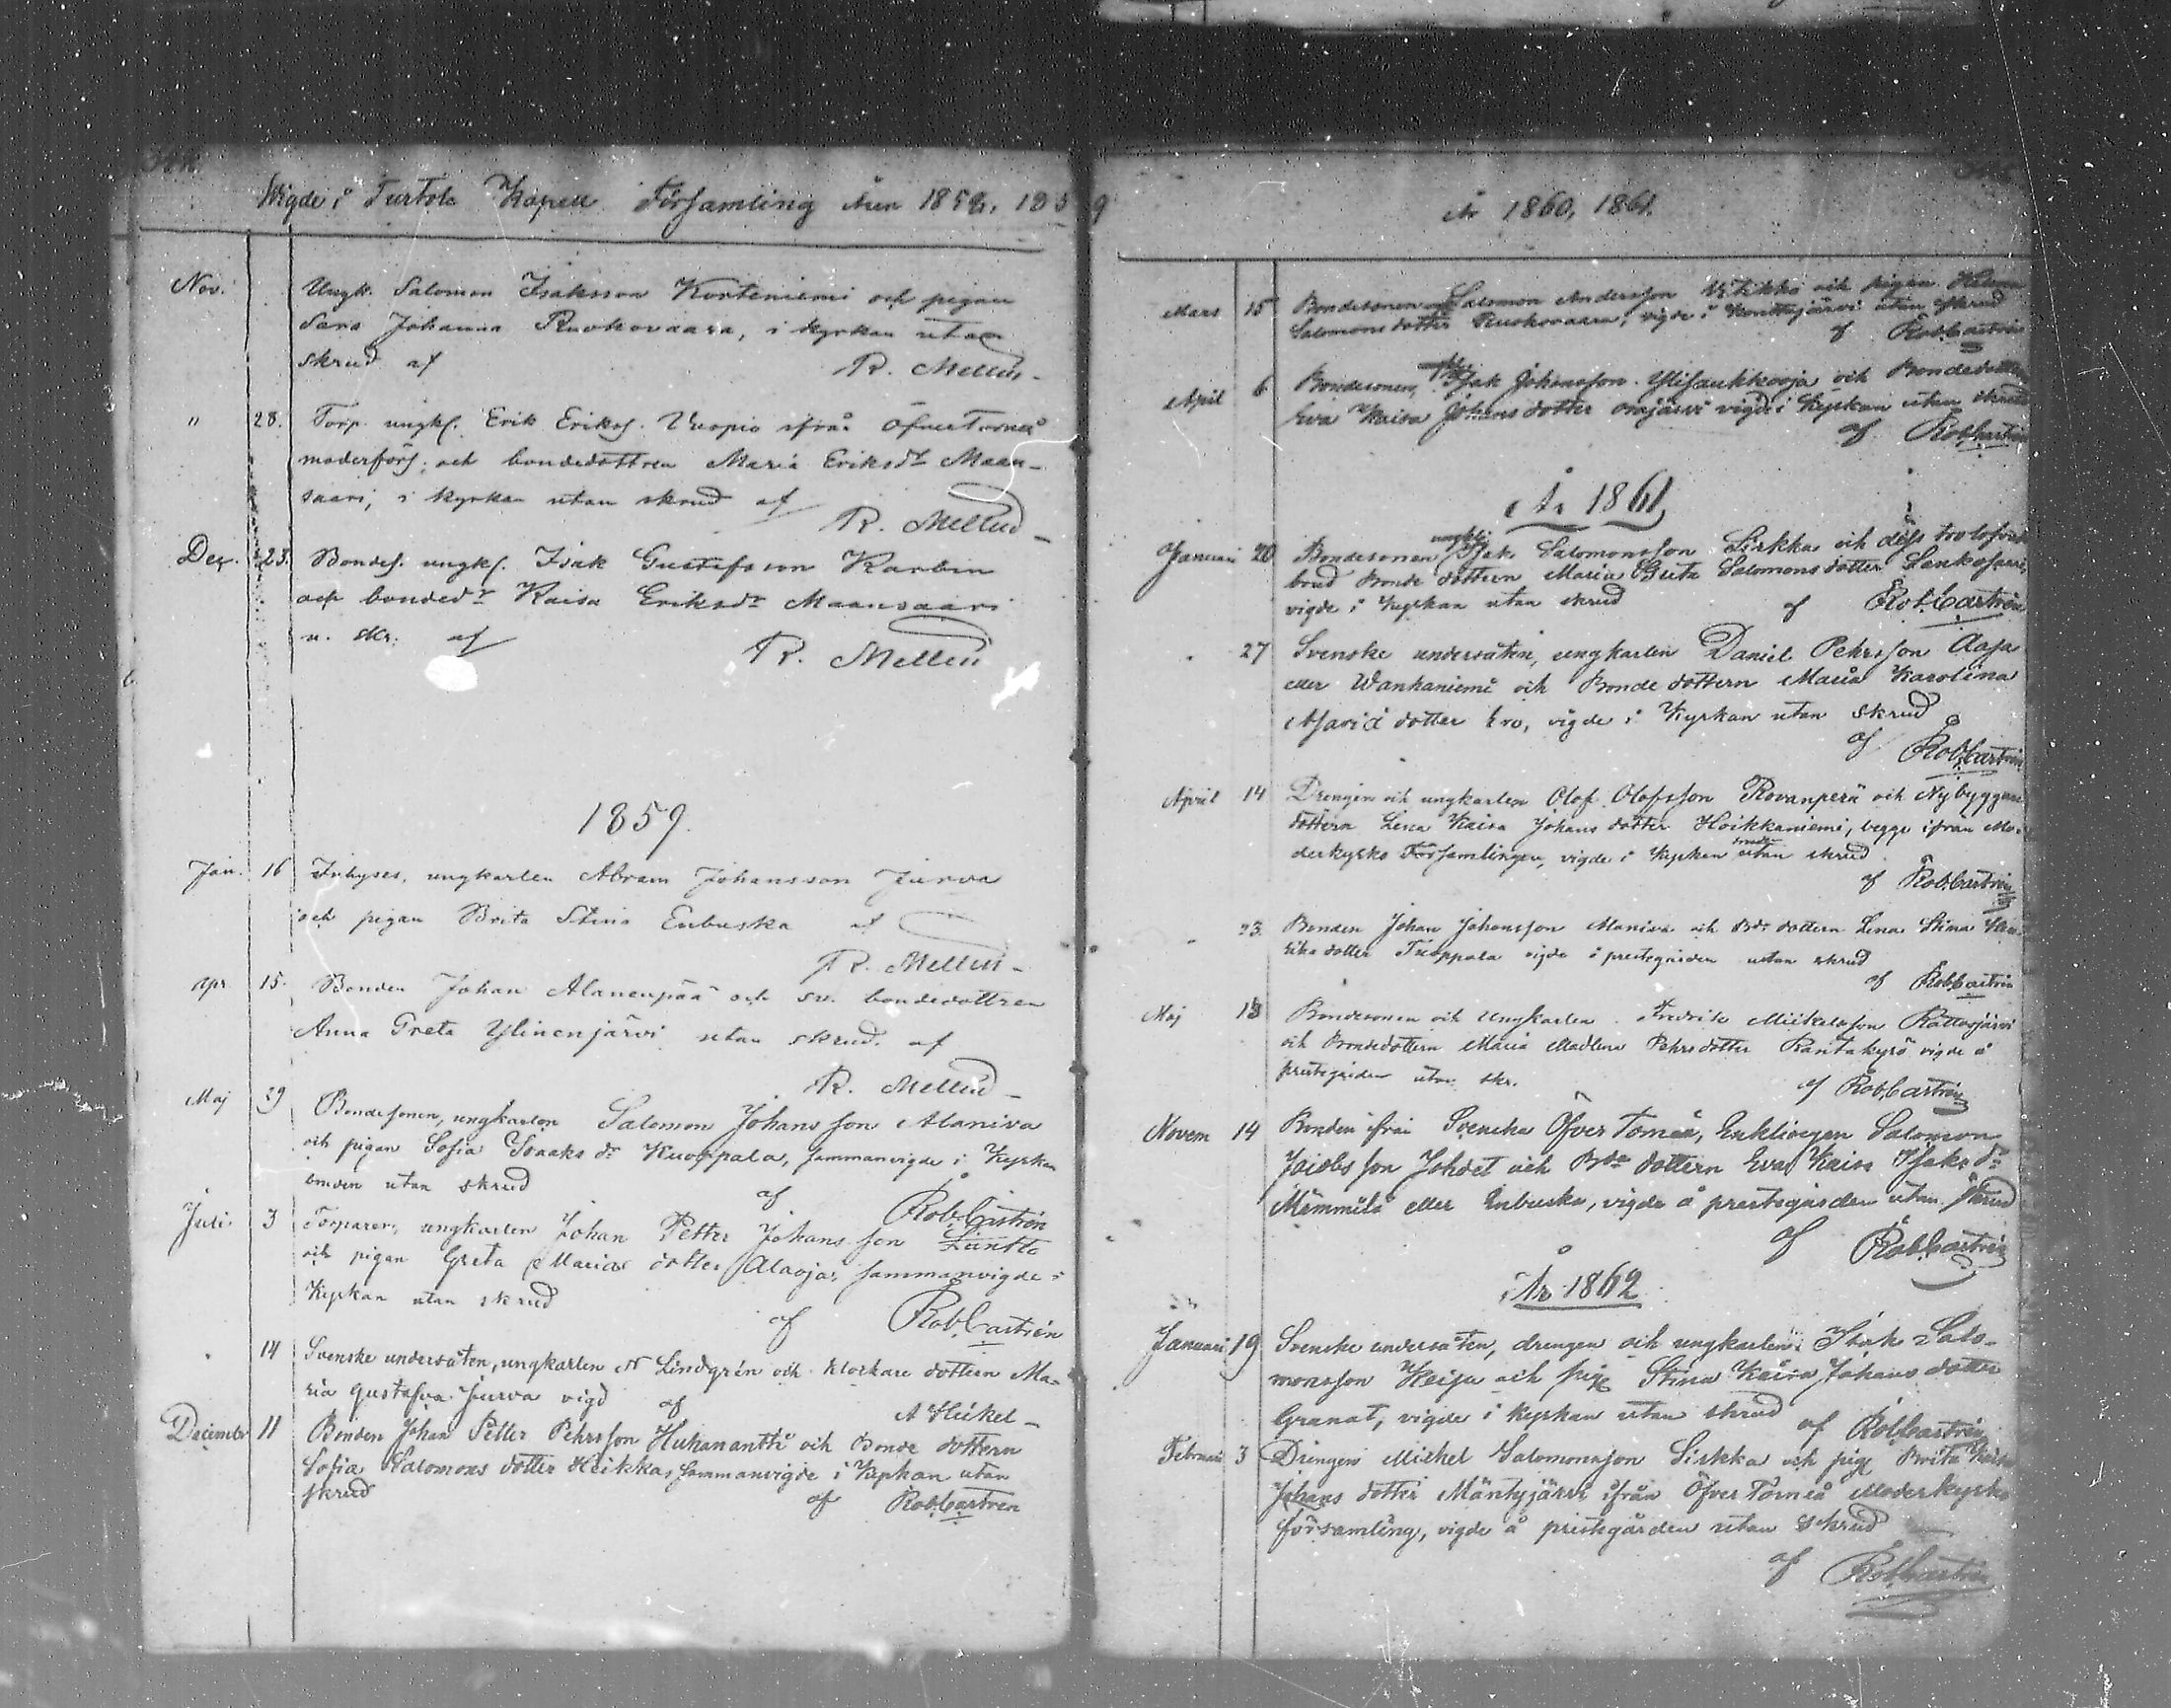 Wigde i Turtola Kapell Församling Åren 1858, 1859
Nov. Ungk. Salomon Isaksson Korteniemi och pigan
Sara Johanna Ruokovaara, i kyrkan utan
skrud af R. Mellin
" 28. Torp. ungk. Erik Eriks. Vuopio ifrån Öfvertorneå
moderförs. och bondedottren Maria Eriksdr Maan-
saari, i kyrkan utan skrud af
R. Mellin
Dec. 23. Bondes. ungk. Isak Gustafsson Karbin
och bondedr Kaisa Eriksdr Maansaari
u. skr. af R. Mellin
1859.
Jan. 16 Inhyses, ungkarlen Abram Johansson Jurva
och pigan Brita Stina Enbuska af
R. Mellin
Apr 15. Bonden Johan Alanenpää och sv. bondedottren
Anna Greta Ylinenjärvi utan skrud af
R. Mellin
Maj 29 Bondesonen, ungkarlen Salomon Johansson Alaniva
och pigan Sofia Isaaks dr Kuoppala, sammanvigde i Kyrkan
utan skrud af Rob. Castrén
Juli 3 Torparen, ungkarlen Johan Petter Johansson
och pigan Greta Maria dotter Alaoja, sammanvigde i
Kyrkan utan skrud af Rob. Castrén
14 Svenske undersåten, ungkarlen N Lindgrén och klockare dottern Ma-
ria Gustafva Jurva vigd af A Heikel
December 11 Bonden Johan Petter Pehrsson Huhanantti och Bonde dottern
Sofia Salomons dotter Heikka, sammanvigde i Kyrkan utan
skrud af Rob. Castren
År 1860, 1861.
Mars 15 Bondesonen Salomon Andersson Vitikko och pigan Helena
Salomons dotter Ruokovaara, vigde i Konttajärvi utan skrud
af Rob. Castrén
April 6 Bondesonen, Isak Johansson Ylisaukkooja och Bondedottern
Eva Kaisa Johans dotter Orajärvi vigde i Kyrkan utan skrud
af Rob. Castrén
År 1861
Januari 20 Bondesonen ungk. Isak Salomonsson Sirkka och dess trolofvade
brud Bonde dottern Maria Greta Salomons dotter Lankojärvi,
vigde i Kyrkan utan skrud af Rob. Castrén
27 Svenske undersåten, ungkarlen Daniel Pehrsson Aasa
eller Wankaniemi och Bonde dottern Maria Karolina
dotter Ero, vigde i Kyrkan utan skrud
af Rob. Castrén
April 14 Drengen och ungkarlen Olof Olofsson Rovanperä och Nybyggare
dottern Lena Kaisa Johans dotter Hoikkaniemi, begge ifrån Mo-
derkyrko Församlingen, vigde i Kyrkan utan skrud
af Rob. Castrén
23. Bonden Johan Johansson Alaniva och Bde dottern Lena Stina
dotter Kuoppala vigde å prestgården utan skrud
af Rob. Castrén
Maj 13 Bondesonen och Ungkarlen Fredrik Mickelsson Rattosjärvi
och Bondedottern Maria Madlena Pehrs dotter Rantakyrö vigde å
prestgården utan skr. af Rob. Castrén
Novem 14 Bonden ifrån Svenska Öfver Torneå, Enklingen Salomon
Jacobsson Johdet och Bde dottern Eva Kaisa Isaks dr
Mämmilä eller Enbuska, vigde å prestgården utan skrud
af Rob. Castrén
År 1862
Januari 19 Svenske undersåten, drengen och ungkarlen Isak Salo-
monsson Keisu och pig. Stina Kaisa Johans dotter
Granat, vigde i Kyrkan utan skrud af Rob. Castrén
Februari 3 Drengen Michel Salomonsson Sirkka och pig. Brita Kaisa
Johans dotter Mäntyjärvi ifrån Öfver Torneå Moderkyrko
församling, vigde å prestgården utan skrud
af Rob. Castrén